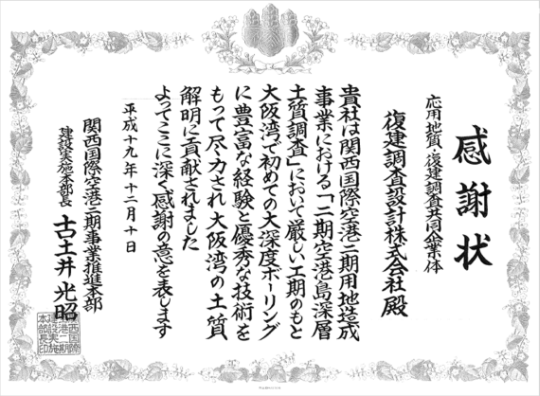 感謝状
応用地質・復建調査共同企業体
復建調査設計株式会社殿
貴社は関西国際空港二期用地造成
事業における「二期空港島深層
土質調査」において厳しい工期のもと
大阪湾で初めての大深度ボーリング
に豊富な経験と優秀な技術を
もって尽力され大阪湾の土質
解明に貢献されました
よってここに深く感謝の意を表します
平成十九年十二月十日
関西国際空港二期事業推進本部
建設実施本部長 古土井光昭